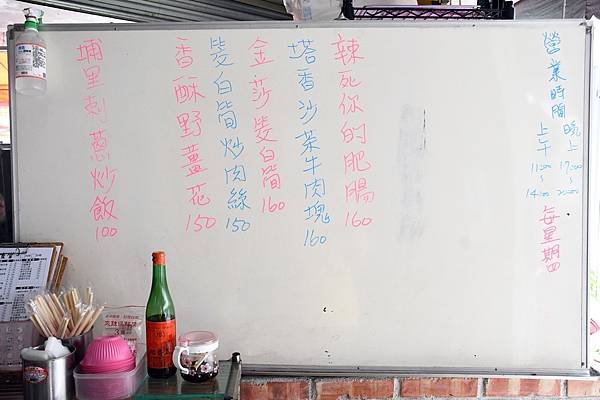 營業時間
晚上 17:00~20:00
上午 11:00~14:00
每星期四
辣死你的肥腸 160
塔香沙茶牛肉塊 160
金莎筊白筍 160
筊白筍炒肉絲 150
香酥野薑花 150
埔里刺蔥炒飯 100